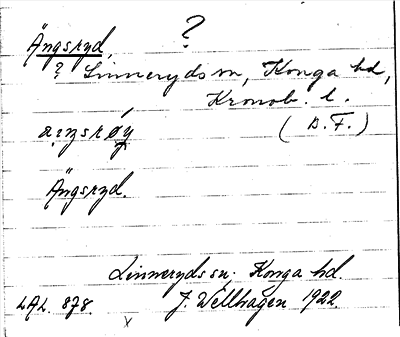 ?
Ängsryd,
? Linneryds sn, Konga hd,
Kronob. l.
(D.F.)
Ängsryd.
Linneryds sn, Konga hd.
LAL. 878. J. Wellhagen 1922.
x